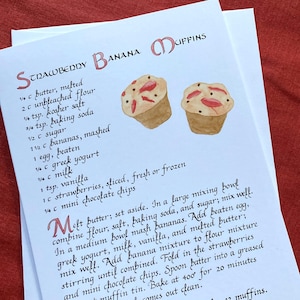 Strawberry Banana Muffins
1/4 c butter, melted
2 c unbleached flour
1/2 tsp. kosher salt
3/4 tsp. baking soda
1/2 c sugar
1 1/2 c bananas, mashed
1 egg, beaten
1/4 c greek yogurt
1/4 c milk
1 tsp. vanilla
1 c strawberries, sliced, fresh or frozen
1/4 c mini chocolate chips
Melt butter; set aside. In a large mixing bowl
combine flour, salt, baking soda, and sugar; mix well.
In a medium bowl mash bananas. Add beaten egg,
greek yogurt, milk, vanilla, and melted butter;
mix well. Add banana mixture to flour mixture
stirring until combined. Fold in the strawberries
and mini chocolate chips. Spoon batter into a greased
muffin tin. Bake at 400° for 20 minutes
comes out clean.
muffins.